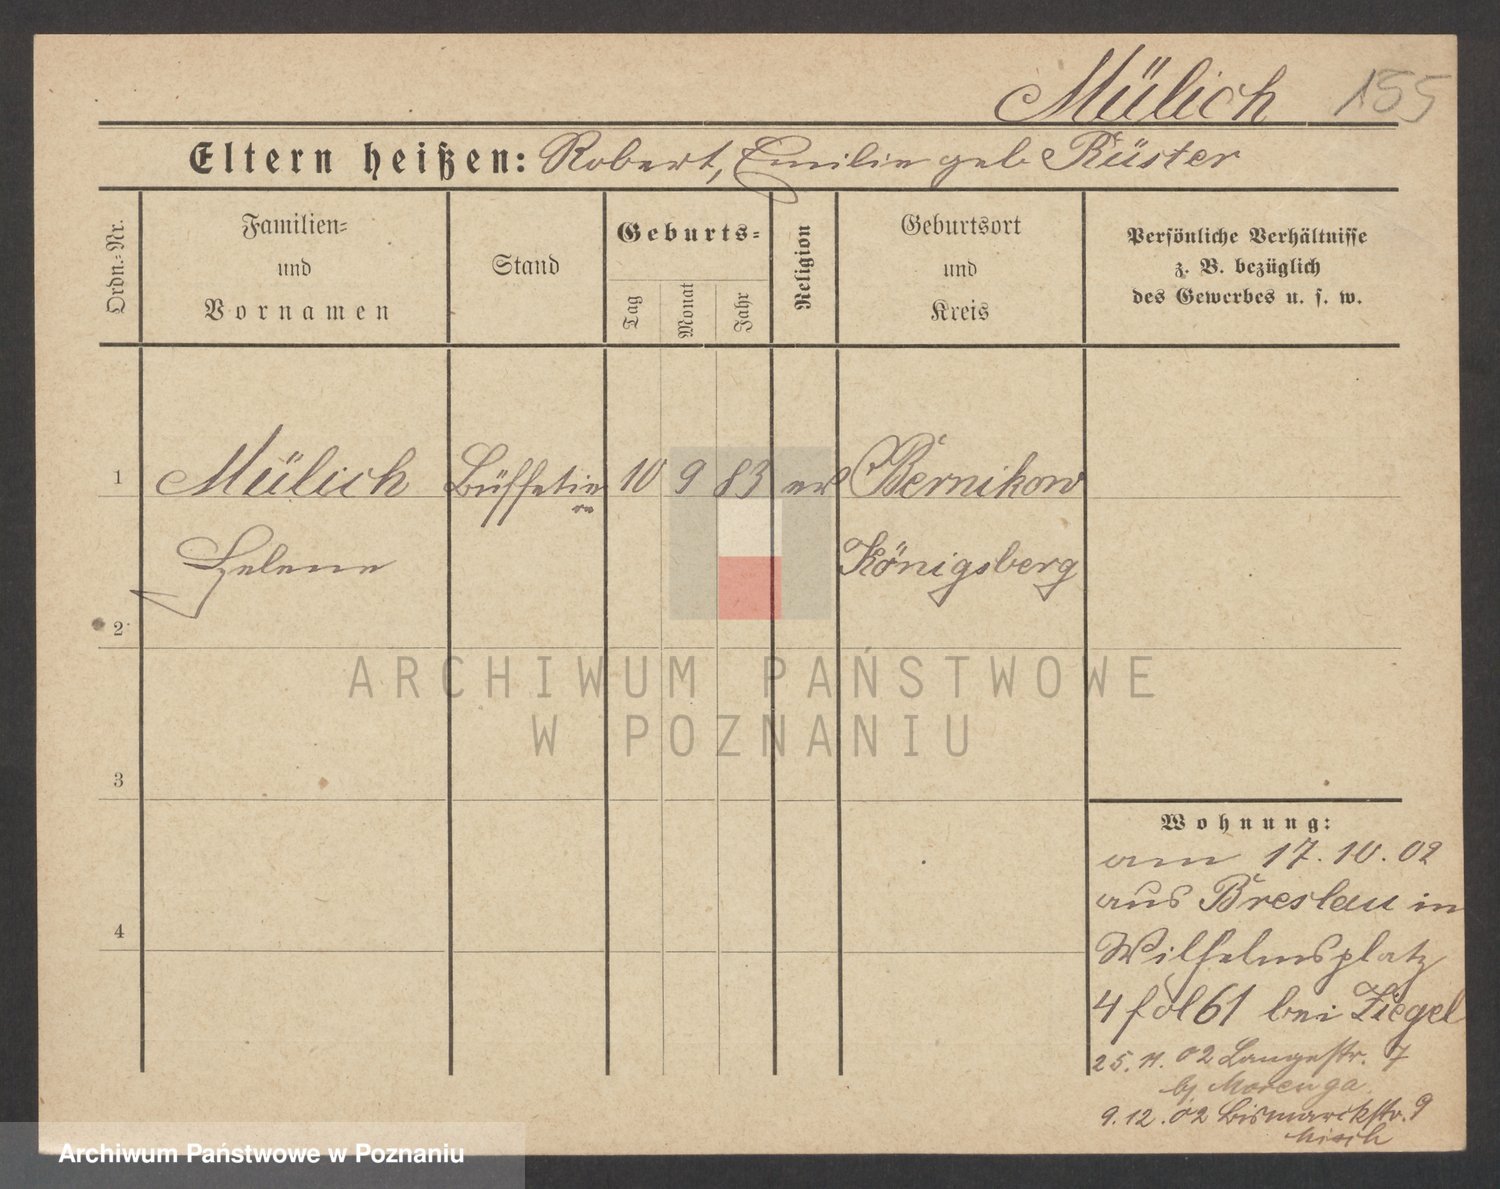 Mülich 155
Eltern heißen: Robert, Emilie geb Rüster
Ordn.-Nr.
Familien-
und
Vornamen
Stand
Geburts-
Tag
Monat
Jahr
Religion
Geburtsort
und
Kreis
Persönliche Verhältnisse
z. B. bezüglich
des Gewerbes u. s. w.
1 Mülich Büffetie 10 9 83 ev Bernikow
re
Helene Königsberg
2
ARCHIWUM PAŃSTWOWE
W POZNANIU
3
Wohnung:
am 17.10.02
aus Breslau in
4
Wilhelmsplatz
4 fol 61 bei Ziegel
25.11.02 Langestr. 7
bj Morenga
9.12.02 Bismarckstr. 9
Archiwum Państwowe w Poznaniu